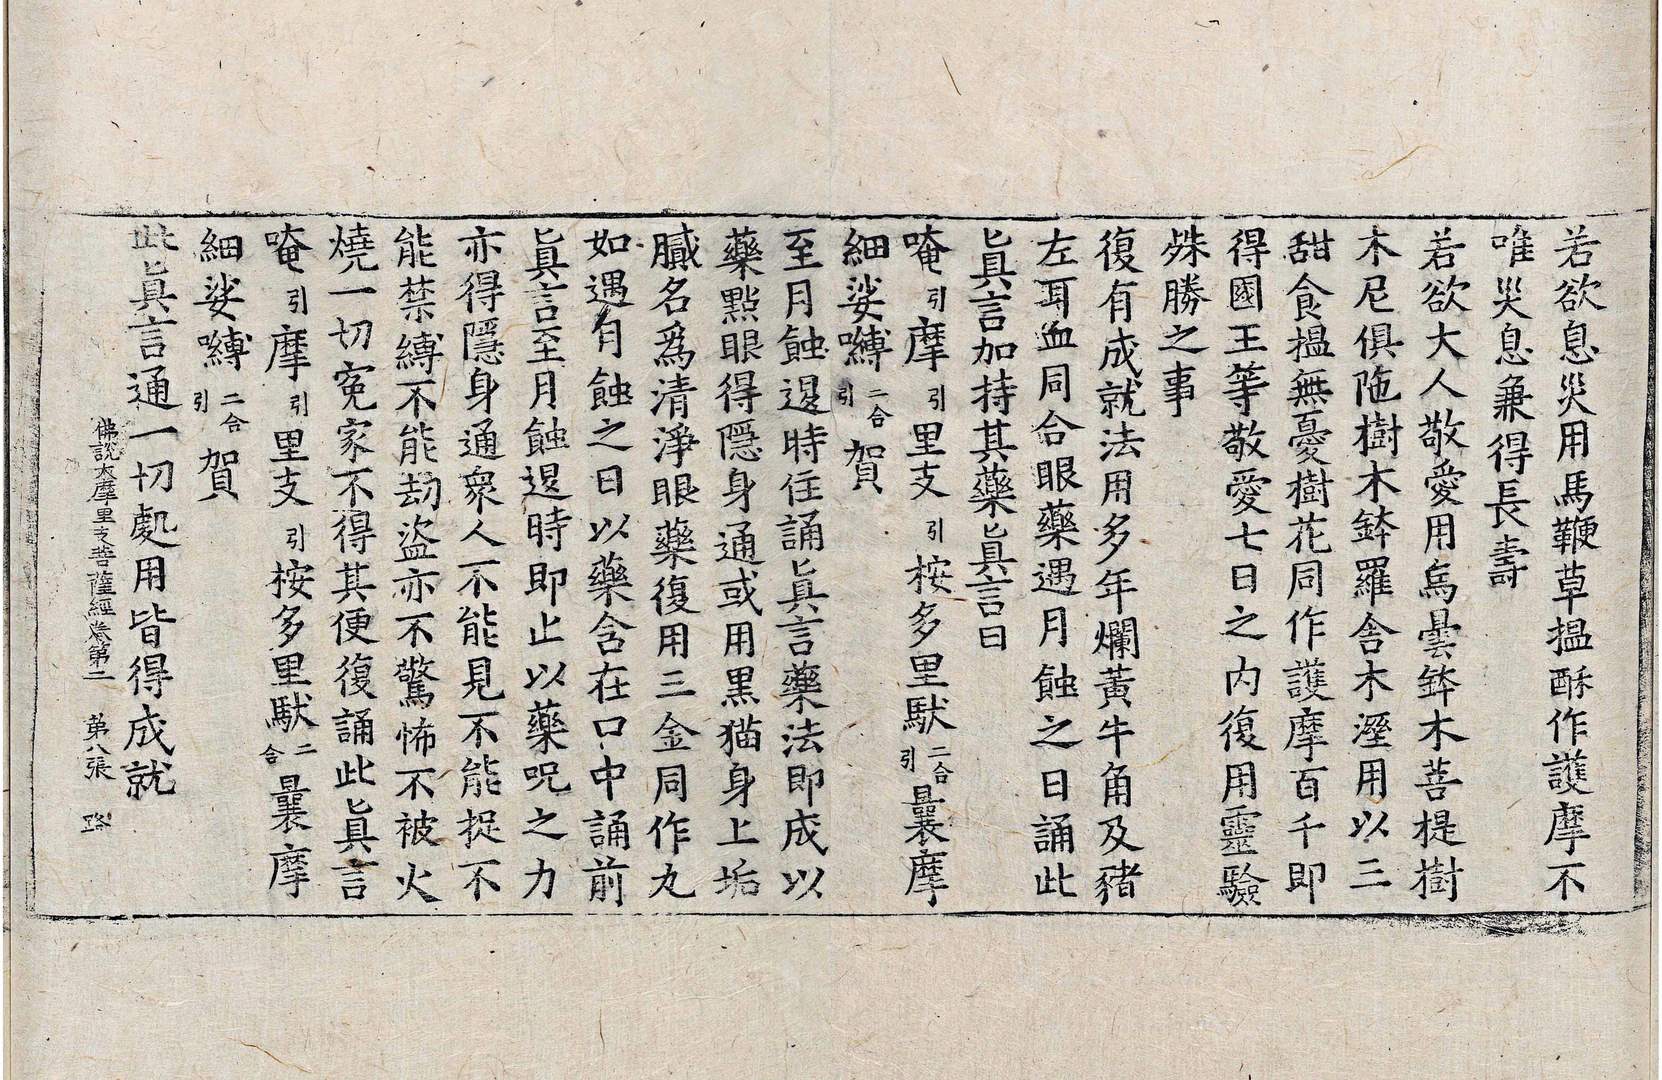 若欲息災用馬鞭草揾酥作護摩不
唯災息兼得長壽
若欲大人敬愛用烏曇鉢木菩提樹
木尼俱陁樹木鉢羅舍木溼用以三
甜食揾無憂樹花同作護摩百千即
得國王等敬愛七日之內復用靈驗
殊勝之事
復有成就法用多年爛黃牛角及豬
左耳血同合眼藥遇月蝕之日誦此
眞言加持其藥眞言曰
唵引摩引里支引桉多里馱二合引曩摩
細娑嚩二合引賀
至月蝕退時住誦眞言藥法即成以
藥點眼得隱身通或用黒猫身上垢
膱名爲清淨眼藥復用三金同作丸
如遇有蝕之日以藥含在口中誦前
眞言至月蝕退時即止以藥呪之力
亦得隱身通衆人不能見不能捉不
能禁縛不能劫盜亦不驚怖不被火
燒一切冤家不得其便復誦此眞言
唵引摩引里支引桉多里馱二合曩摩
細娑嚩二合引賀
此眞言通一切處用皆得成就
佛說大摩里支菩薩經卷第二 第八張 路